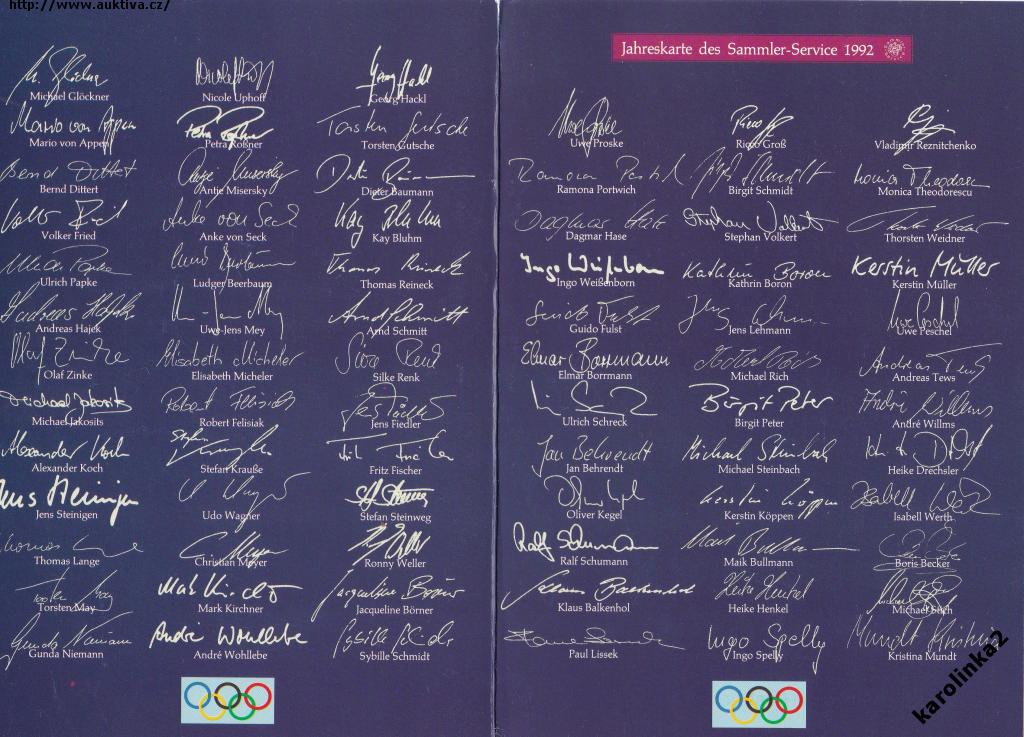 http://www.auktiva.cz/
Jahreskarte des Sammler-Service 1992
Michael Glöckner
Nicole Uphoff
Georg Hackl
Mario von Appen
Petra Roßner
Torsten Gutsche
Bernd Dittert
Antje Misersky
Dieter Baumann
Volker Fried
Anke von Seck
Kay Bluhm
Ulrich Papke
Ludger Beerbaum
Thomas Reineck
Andreas Hajek
Uwe-Jens Mey
Arnd Schmitt
Olaf Zinke
Elisabeth Micheler
Silke Renk
Michael Jakosits
Robert Felisiak
Jens Fiedler
Alexander Koch
Stefan Krauße
Fritz Fischer
Jens Steinigen
Udo Wagner
Stefan Steinweg
Thomas Lange
Christian Meyer
Ronny Weller
Torsten May
Mark Kirchner
Jacqueline Börner
Gunda Niemann
André Wohllebe
Sybille Schmidt
Uwe Proske
Ricco Groß
Vladimir Reznitchenko
Ramona Portwich
Birgit Schmidt
Monica Theodorescu
Dagmar Hase
Stephan Volkert
Thorsten Weidner
Ingo Weißenborn
Kathrin Boron
Kerstin Müller
Guido Fulst
Jens Lehmann
Uwe Peschel
Elmar Borrmann
Michael Rich
Andreas Tews
Ulrich Schreck
Birgit Peter
André Willms
Jan Behrendt
Michael Steinbach
Heike Drechsler
Oliver Kegel
Kerstin Köppen
Isabell Werth
Ralf Schumann
Maik Bullmann
Boris Becker
Klaus Balkenhol
Heike Henkel
Michael Stich
Paul Lissek
Ingo Spelly
Kristina Mundt
karolinka2